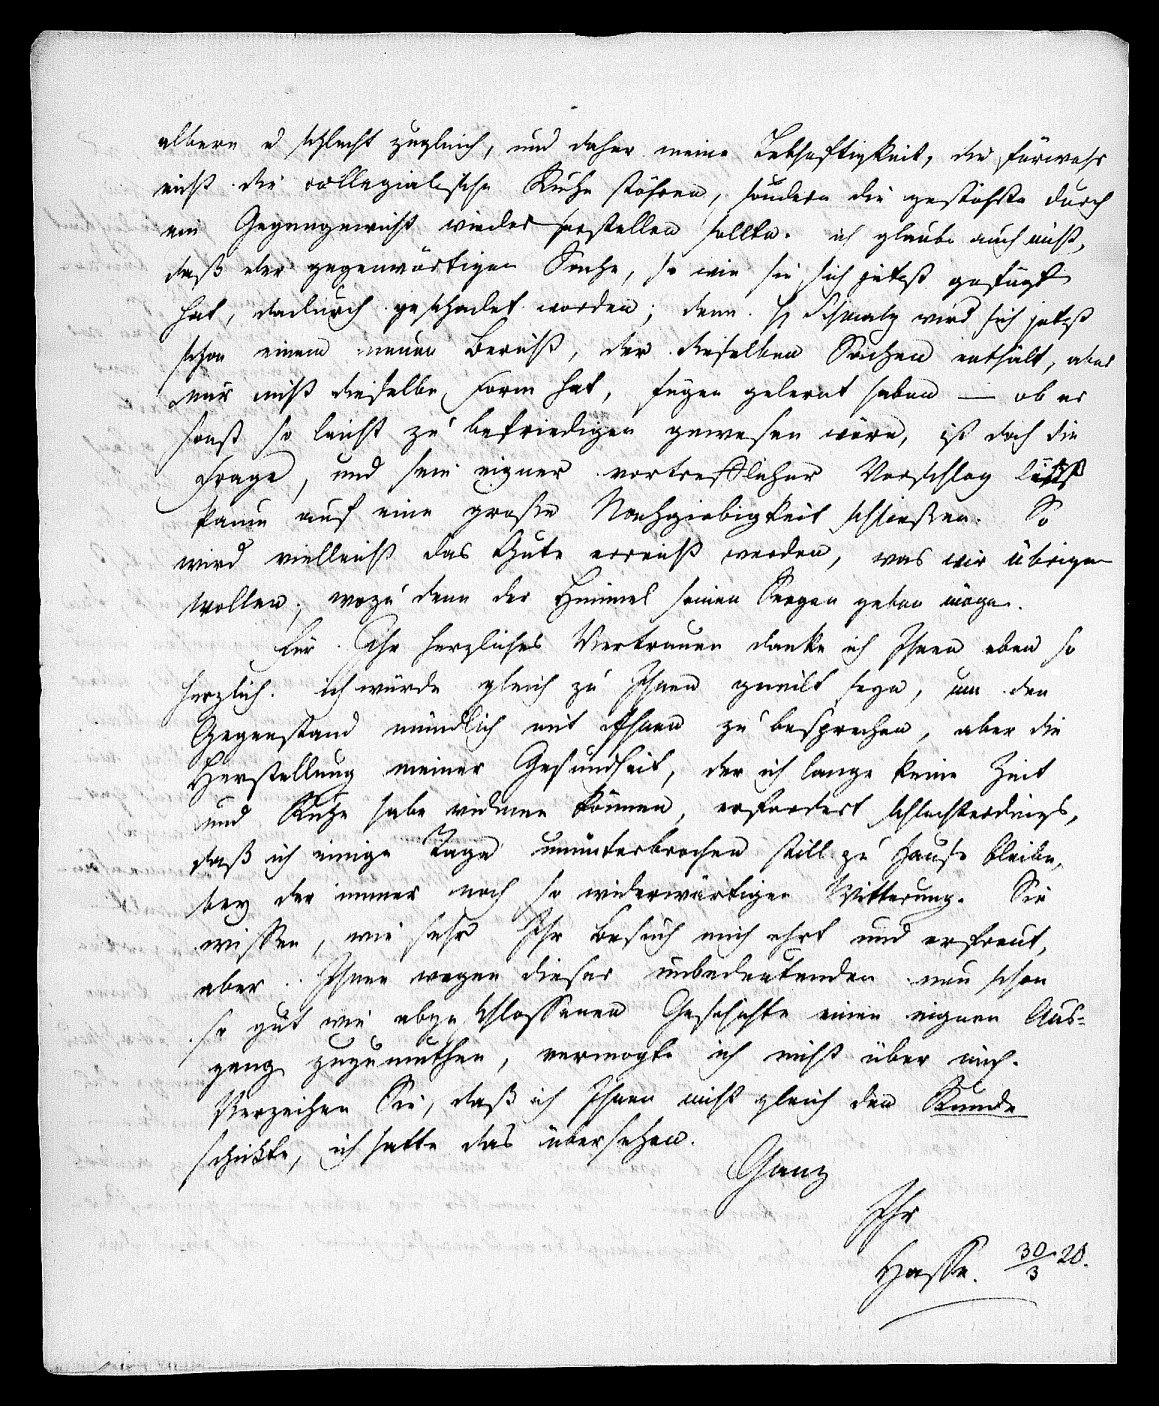 albern u schlecht zugleich, und daher meine Lebhaftigkeit, die fürwahr
nicht die collegialische Ruhe stöhren, sondern die gestöhrte durch
ein Gegengewicht wieder herstellen sollte. ich glaube auch nicht,
daß der gegenwärtigen Sache, so wie sie sich jetzt gefügt
hat, dadurch geschadet worden; denn H Schmalz wird sich jetzt
schon einem neuen Bericht, der dieselben Sachen enthält, aber
nur nicht dieselbe Form hat, fügen gelernt haben — ob er
sonst so leicht zu befriedigen gewesen wäre, ist doch die
Frage, und sein eigner vortrefflicher Vorschlag läßt
kaum auf eine große Nachgiebigkeit schließen. So
wird vielleicht das Gute erreicht werden, was wir übrigen
wollen; wozu denn der Himmel seinen Seegen geben möge.
Für Ihr herzliches Vertrauen danke ich Ihnen eben so
herzlich. ich würde gleich zu Ihnen geeilt seyn, um den
Gegenstand mündlich mit Ihnen zu besprechen, aber die
Herstellung meiner Gesundheit, der ich lange keine Zeit
und Ruhe habe widmen können, erfordert schlechterdings,
daß ich einige Tage ununterbrochen still zu Hause bleibe,
bey der immer noch so widerwärtigen Witterung. Sie
wissen, wie sehr Ihr Besuch mich ehrt und erfreut,
aber Ihnen wegen dieser unbedeutenden nun schon
so gut wie abgeschlossenen Geschichte einen eignen Aus-
gang zuzumuthen, vermogte ich nicht über mich.
Verzeihen Sie, daß ich Ihnen nicht gleich den Runde
schickte, ich hatte das übersehen.
Ganz
Ihr
Hasse. 30/3 20.